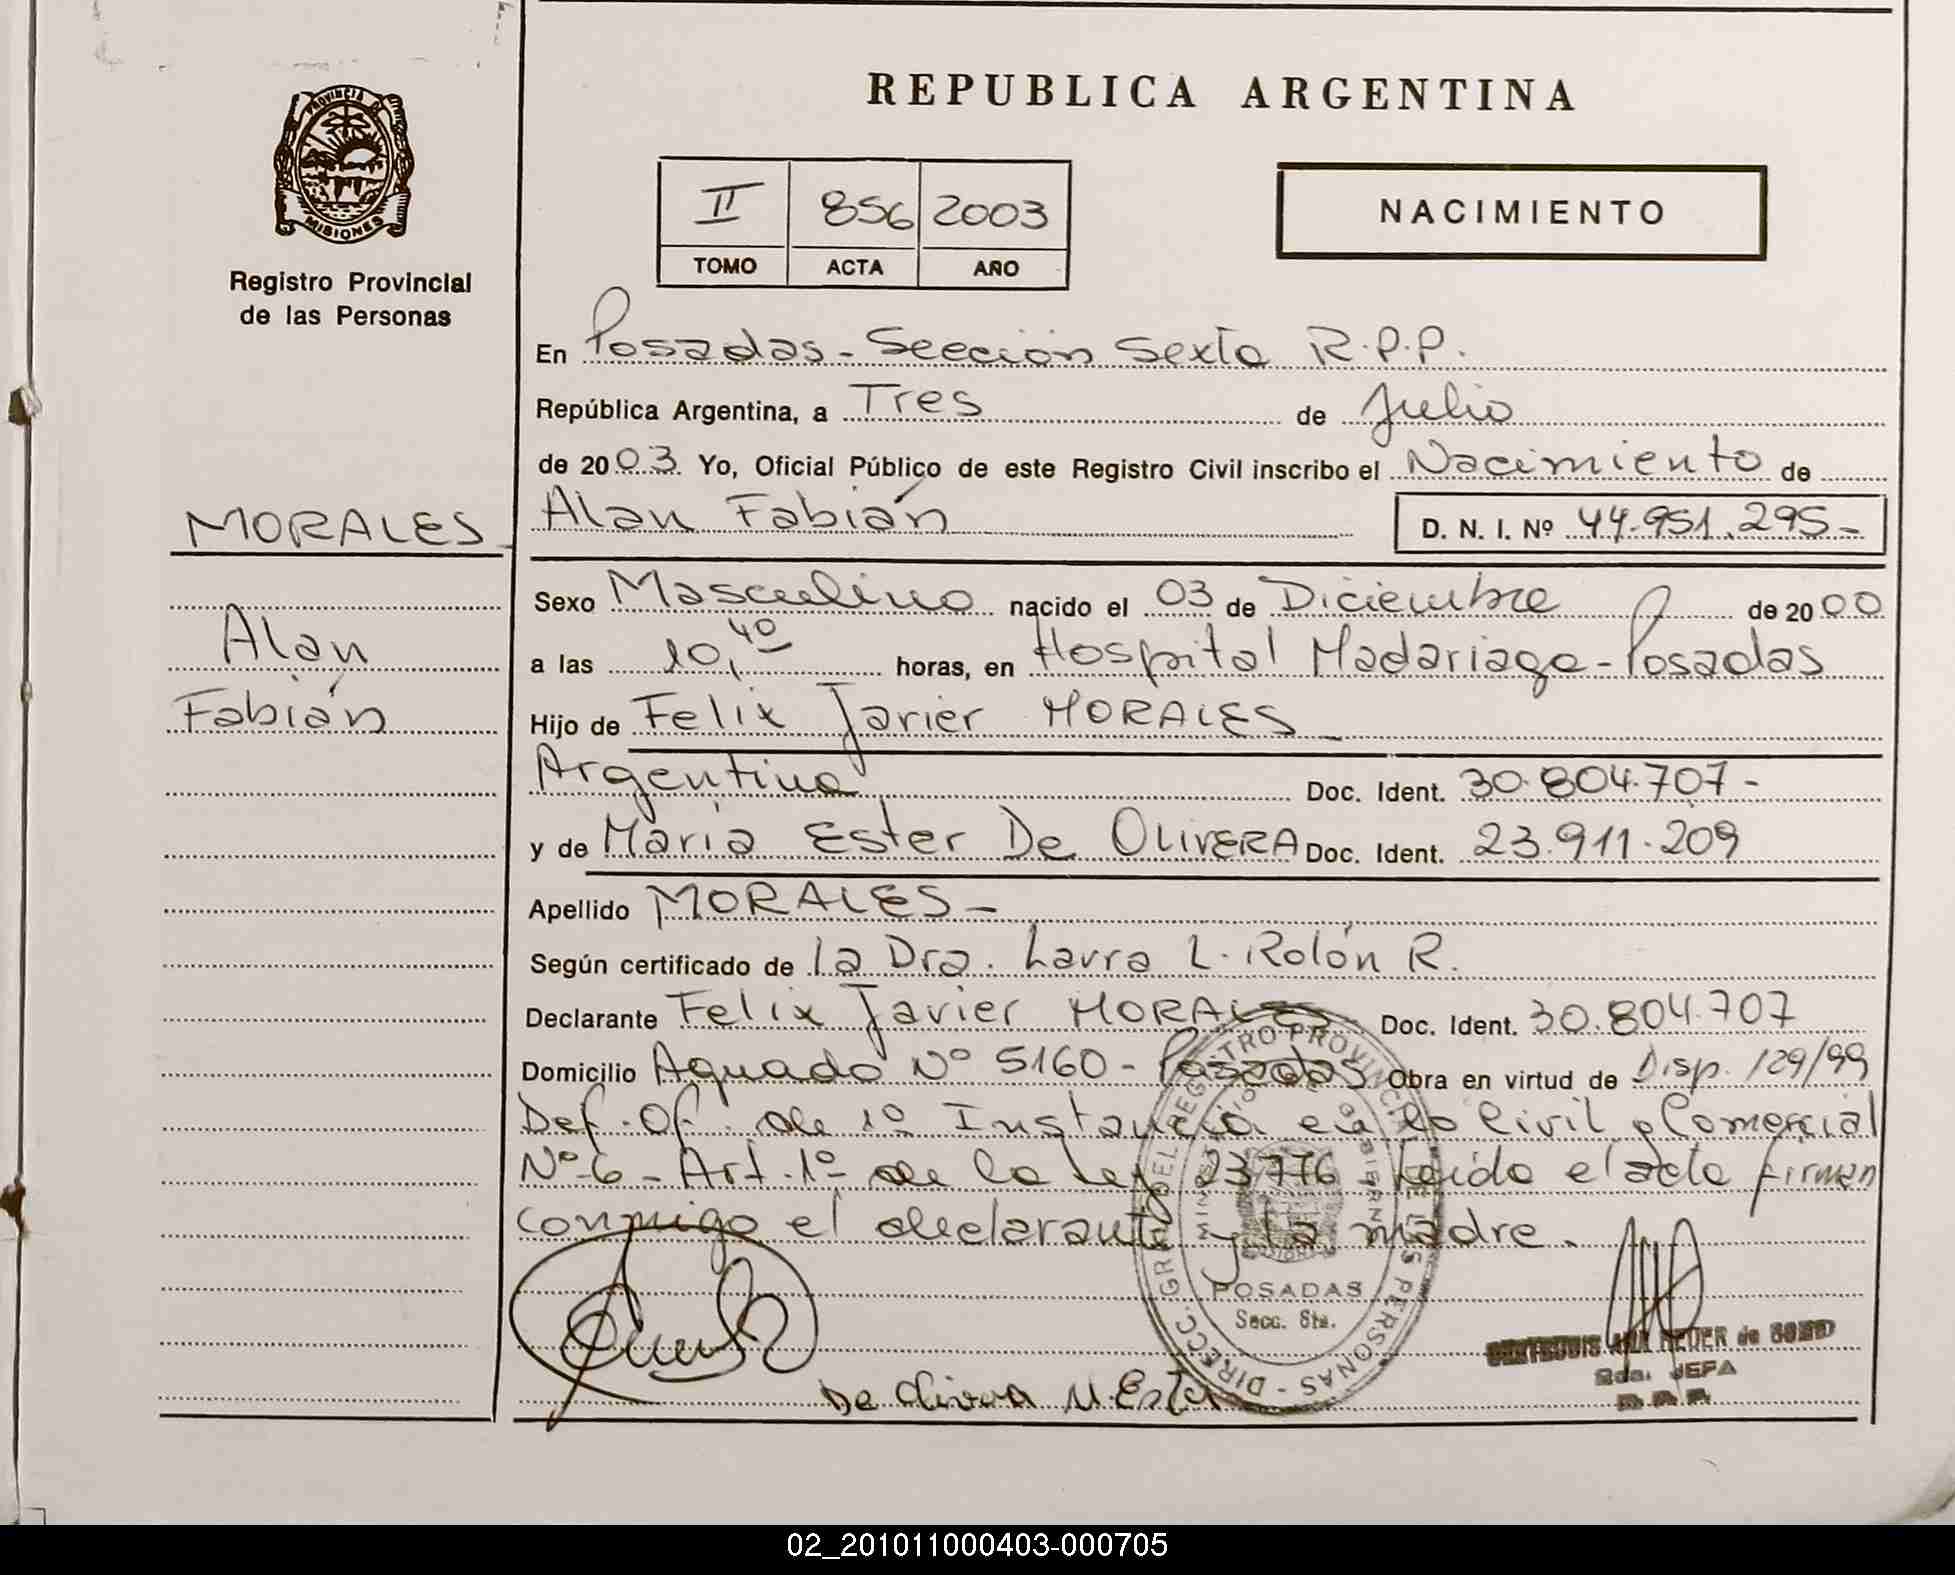 REPUBLICA ARGENTINA
PROVINCIA DE
MISIONES
Registro Provincial
de las Personas
II 856 2003
TOMO ACTA AÑO
NACIMIENTO
En Posadas - Sección Sexta R.P.P.
República Argentina, a Tres de Julio
de 2003 Yo, Oficial Público de este Registro Civil inscribo el Nacimiento de
MORALES
Alan Fabián D. N. I. Nº 44.951.295-
Sexo Masculino nacido el 03 de Diciembre de 2000
Alan
a las 10,40 horas, en Hospital Madariaga - Posadas
Fabián
Hijo de Felix Javier MORALES
Argentina Doc. Ident. 30.804.707-
y de María Ester De OLIVERA Doc. Ident. 23.911.209
Apellido MORALES-
Según certificado de la Dra. Laura L. Rolón R.
Declarante Felix Javier MORALES Doc. Ident. 30.804.707
Domicilio Aguado Nº 5160 - Posadas Obra en virtud de Disp. 129/99
Def. Of. de 1º Instancia en lo Civil y Comercial
Nº 6 - Art. 1º de la Ley 23776 Leido el acta firman
conmigo el declarante y la madre.
DIRECC. GRAL. DEL REGISTRO PROVINCIAL DE LAS PERSONAS
POSADAS
Secc. 6ta.
De Olivera M. Ester
JEFA
02_201011000403-000705